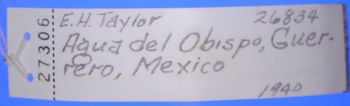 27306
E.H. Taylor 26834
Agua del Obispo, Guer-
rero, Mexico
1940